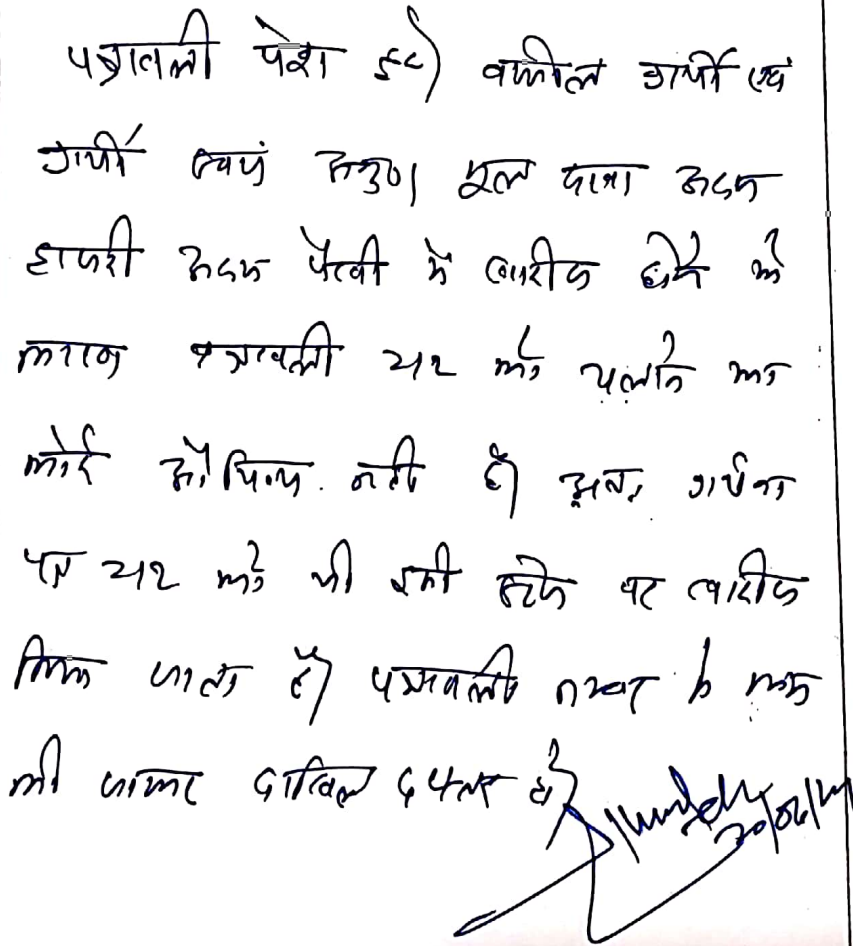 पत्रावली पेश हुई। वकील प्रार्थी एवं
प्रार्थी स्वयं अनु०। मूल दावा अदम
हाजरी अदम पैरवी में खारीज होने के
कारण पत्रावली 212 को चलाने का
कोई औचित्य नहीं है। अतः प्रार्थना
पत्र 212 को भी इसी स्टेज पर खारीज
किया जाता है। पत्रावली नम्बर से कम
की जाकर दाखिल दफ्तर हो।